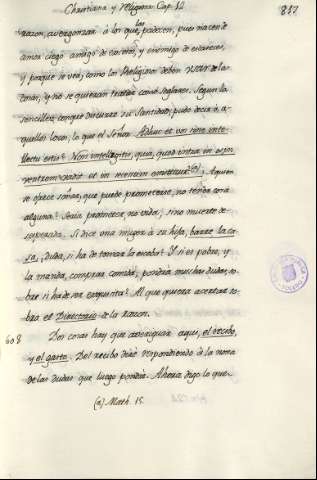 Christiana y Religiosa Cap. 12
817
razon, avergonzar à los que los padecen, pues nacen de
amor ciego amigo de
y enemigo de
y porque se vea, como los Religiosos deben usar de las
cosas, y no se quieran tratar como seglares. Segun la
sencillez conque discurre su Santidad; pudo decir à a
quellos locos, lo que el Señor: Adhuc et vos sine inte-
llectu estis? Non intelligitis, quia, quod intrat in os, in
ventrem vadit et in secessum emittitur (a)? Aquien
se ofrece
que puede prometerse, no tener cosa
alguna? Seria prometer, no vida; sino muerte de
sesperada. Si dice una muger à su hija, barre la ca
sa, duda, si ha de tomar la escoba? Y si es pobre, y
la manda, comprar comida, pondrà muchas dudas, so
bre si ha de ser exquisita? Al que quiera acertar so
bra el Directorio de la razon.
608
Dos cosas hay que averiguar aqui, el recibo,
y el gasto. Del recibo dirè respondiendo à la
de las dudas que luego pondrè. Ahora digo lo que
(a) Math. 15.